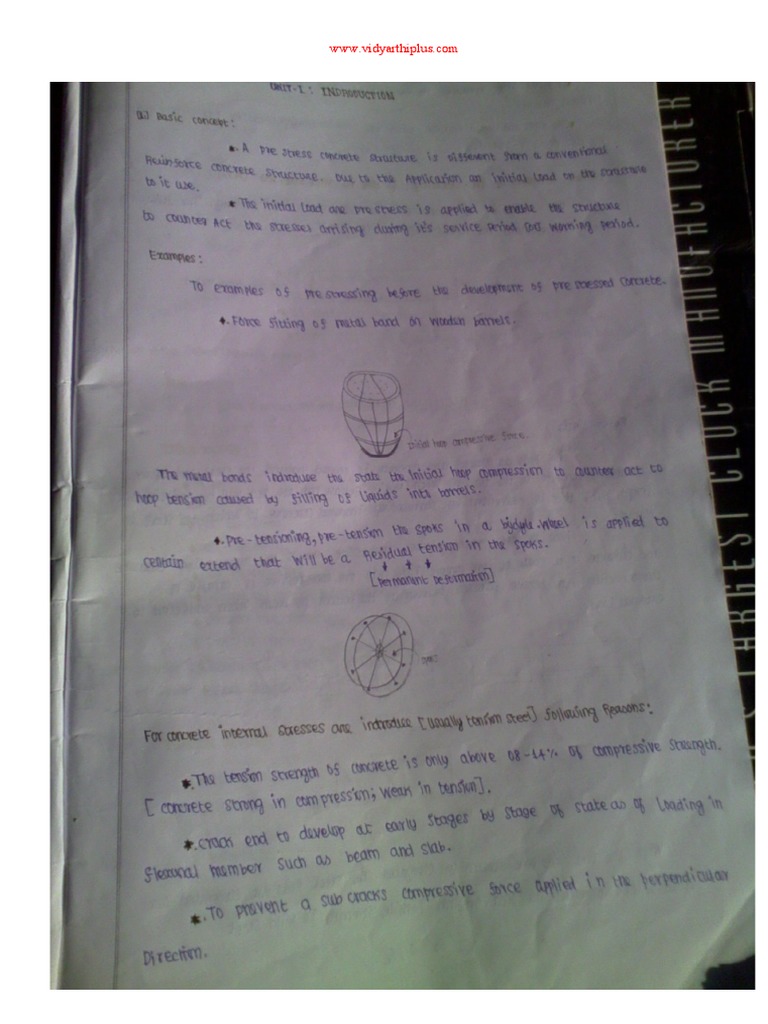 www.vidyarthiplus.com
UNIT-I : INTRODUCTION
a) Basic concept:
*. A pre stress concrete structure is different from a conventional
Reinforce concrete structure. Due to the Application an initial load on the structure
to it use.
* The initial load are prestress is applied to enable the structure
to counter Act the stresses arrising during it's service period (or) working period.
Examples:
To examples of prestressing before the development of prestressed concrete.
*. Force fitting of metal band on wooden barrels.
Initial hoop compressive force.
The metal bands indroduce the state the initial hoop compression to counter act to
hoop tension caused by filling of liquids into barrels.
*. Pre-tensioning, pre-tension the spoks in a bicycle wheel is applied to
certain extend that will be a Residual tension in the spoks.
[permanent deformation]
spoks
For concrete internal stresses are indroduce [usually tension steel] following Reasons:
*. The tension strength of concrete is only above 08-14% of compressive strength.
[concrete strong in compression; weak in tension].
*. crack end to develop at early stages by stage of state as of loading in
flexural member such as beam and slab.
*. To prevent a sub cracks compressive force applied in the perpendicular
Direction.
LARGEST CLOCK MANUFACTURER